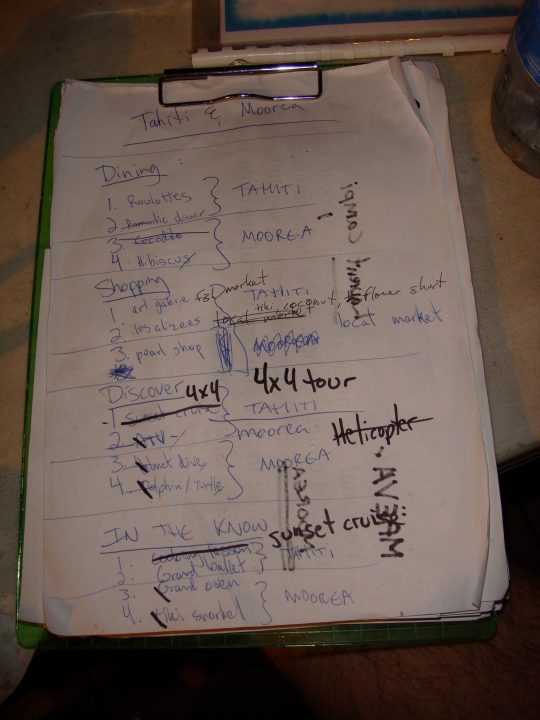 Tahiti & Moorea
Dining:
1. Roulottes } TAHITI
2. Romantic dinner
3. Cocodile } MOOREA
4. Hibiscus
Shopping
1. art galerie F&D market TAHITI
tiki, coconut, flower short
2. les alizees local market
3. pearl shop
Discover 4x4 4x4 tour
1. sunset cruise } TAHITI
2. ATV - moorea Helicopter
3. helmet dive } MOOREA
4. Dolphin/Turtle
IN THE KNOW sunset cruis
1. lesson } TAHITI
2. Grand ballet
3. Grand oven } MOOREA
4. tiki snorkel
MOOREA